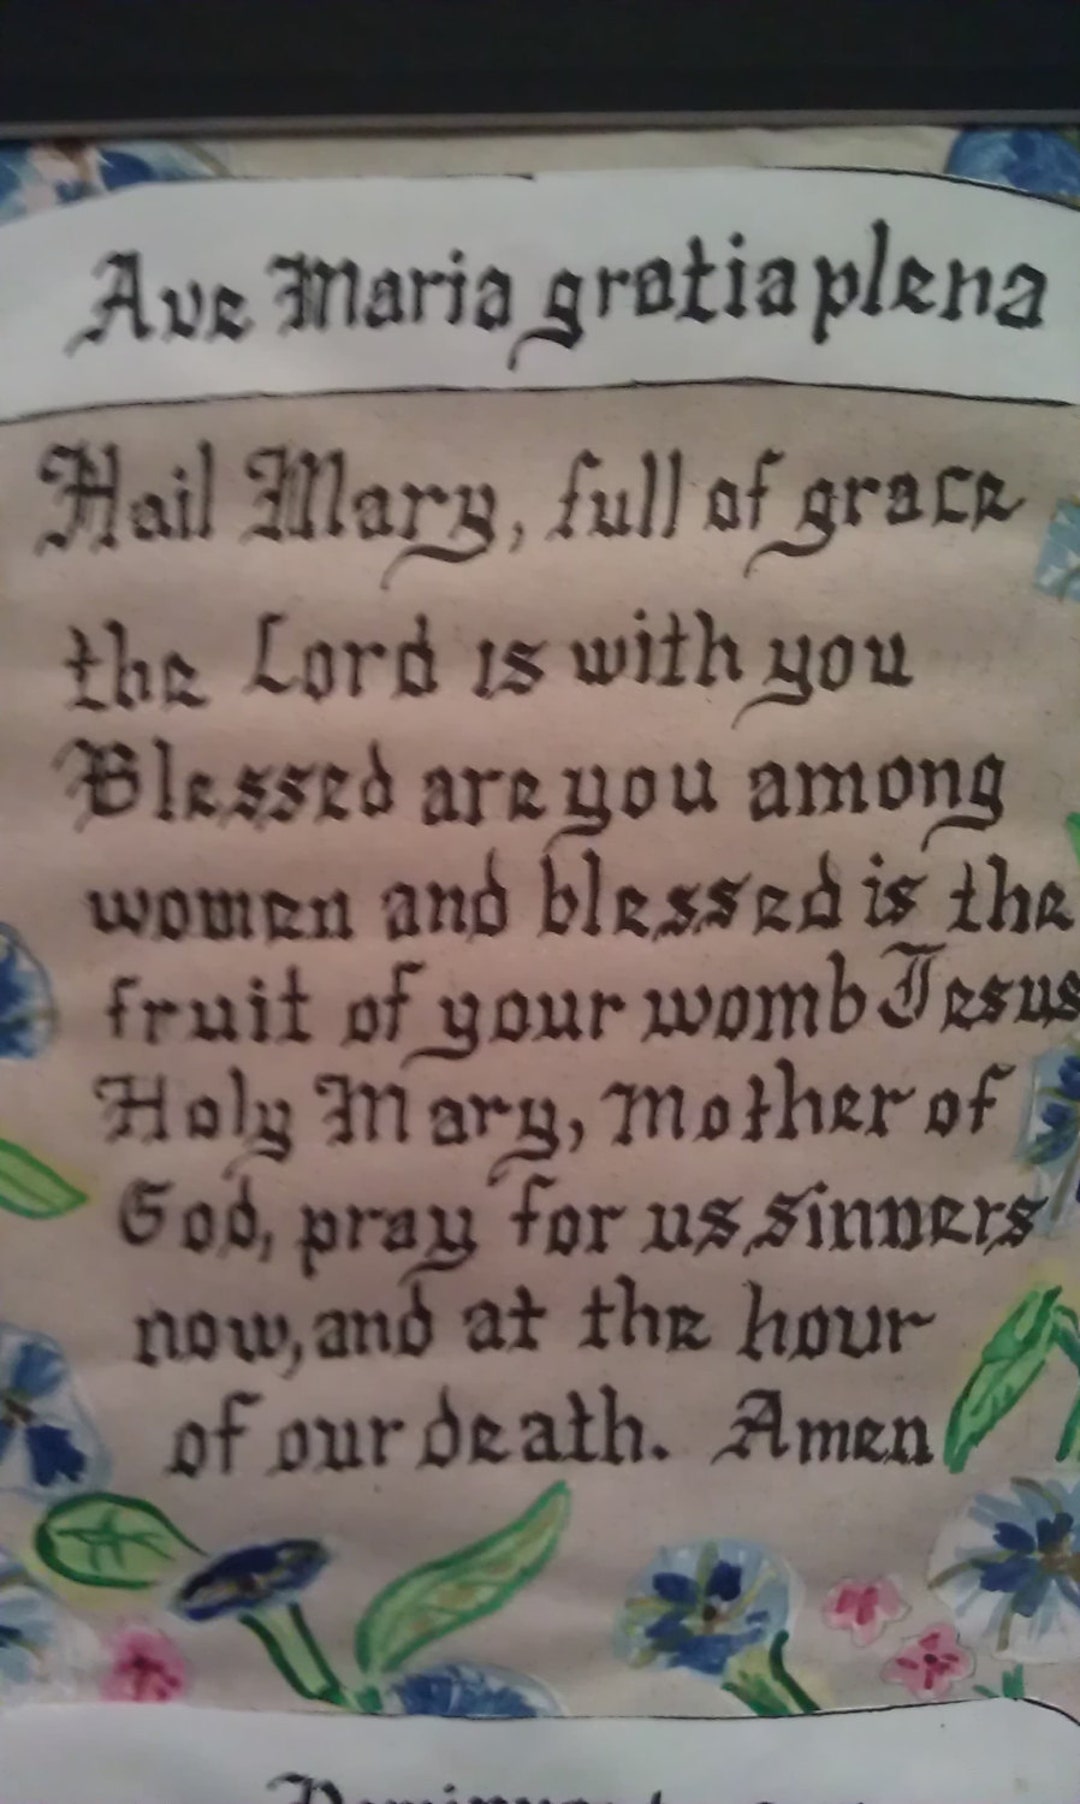 Ave Maria gratia plena
Hail Mary, full of grace
the Lord is with you
Blessed are you among
women and blessed is the
fruit of your womb Jesus
Holy Mary, Mother of
God, pray for us sinners
now, and at the hour
of our death. Amen